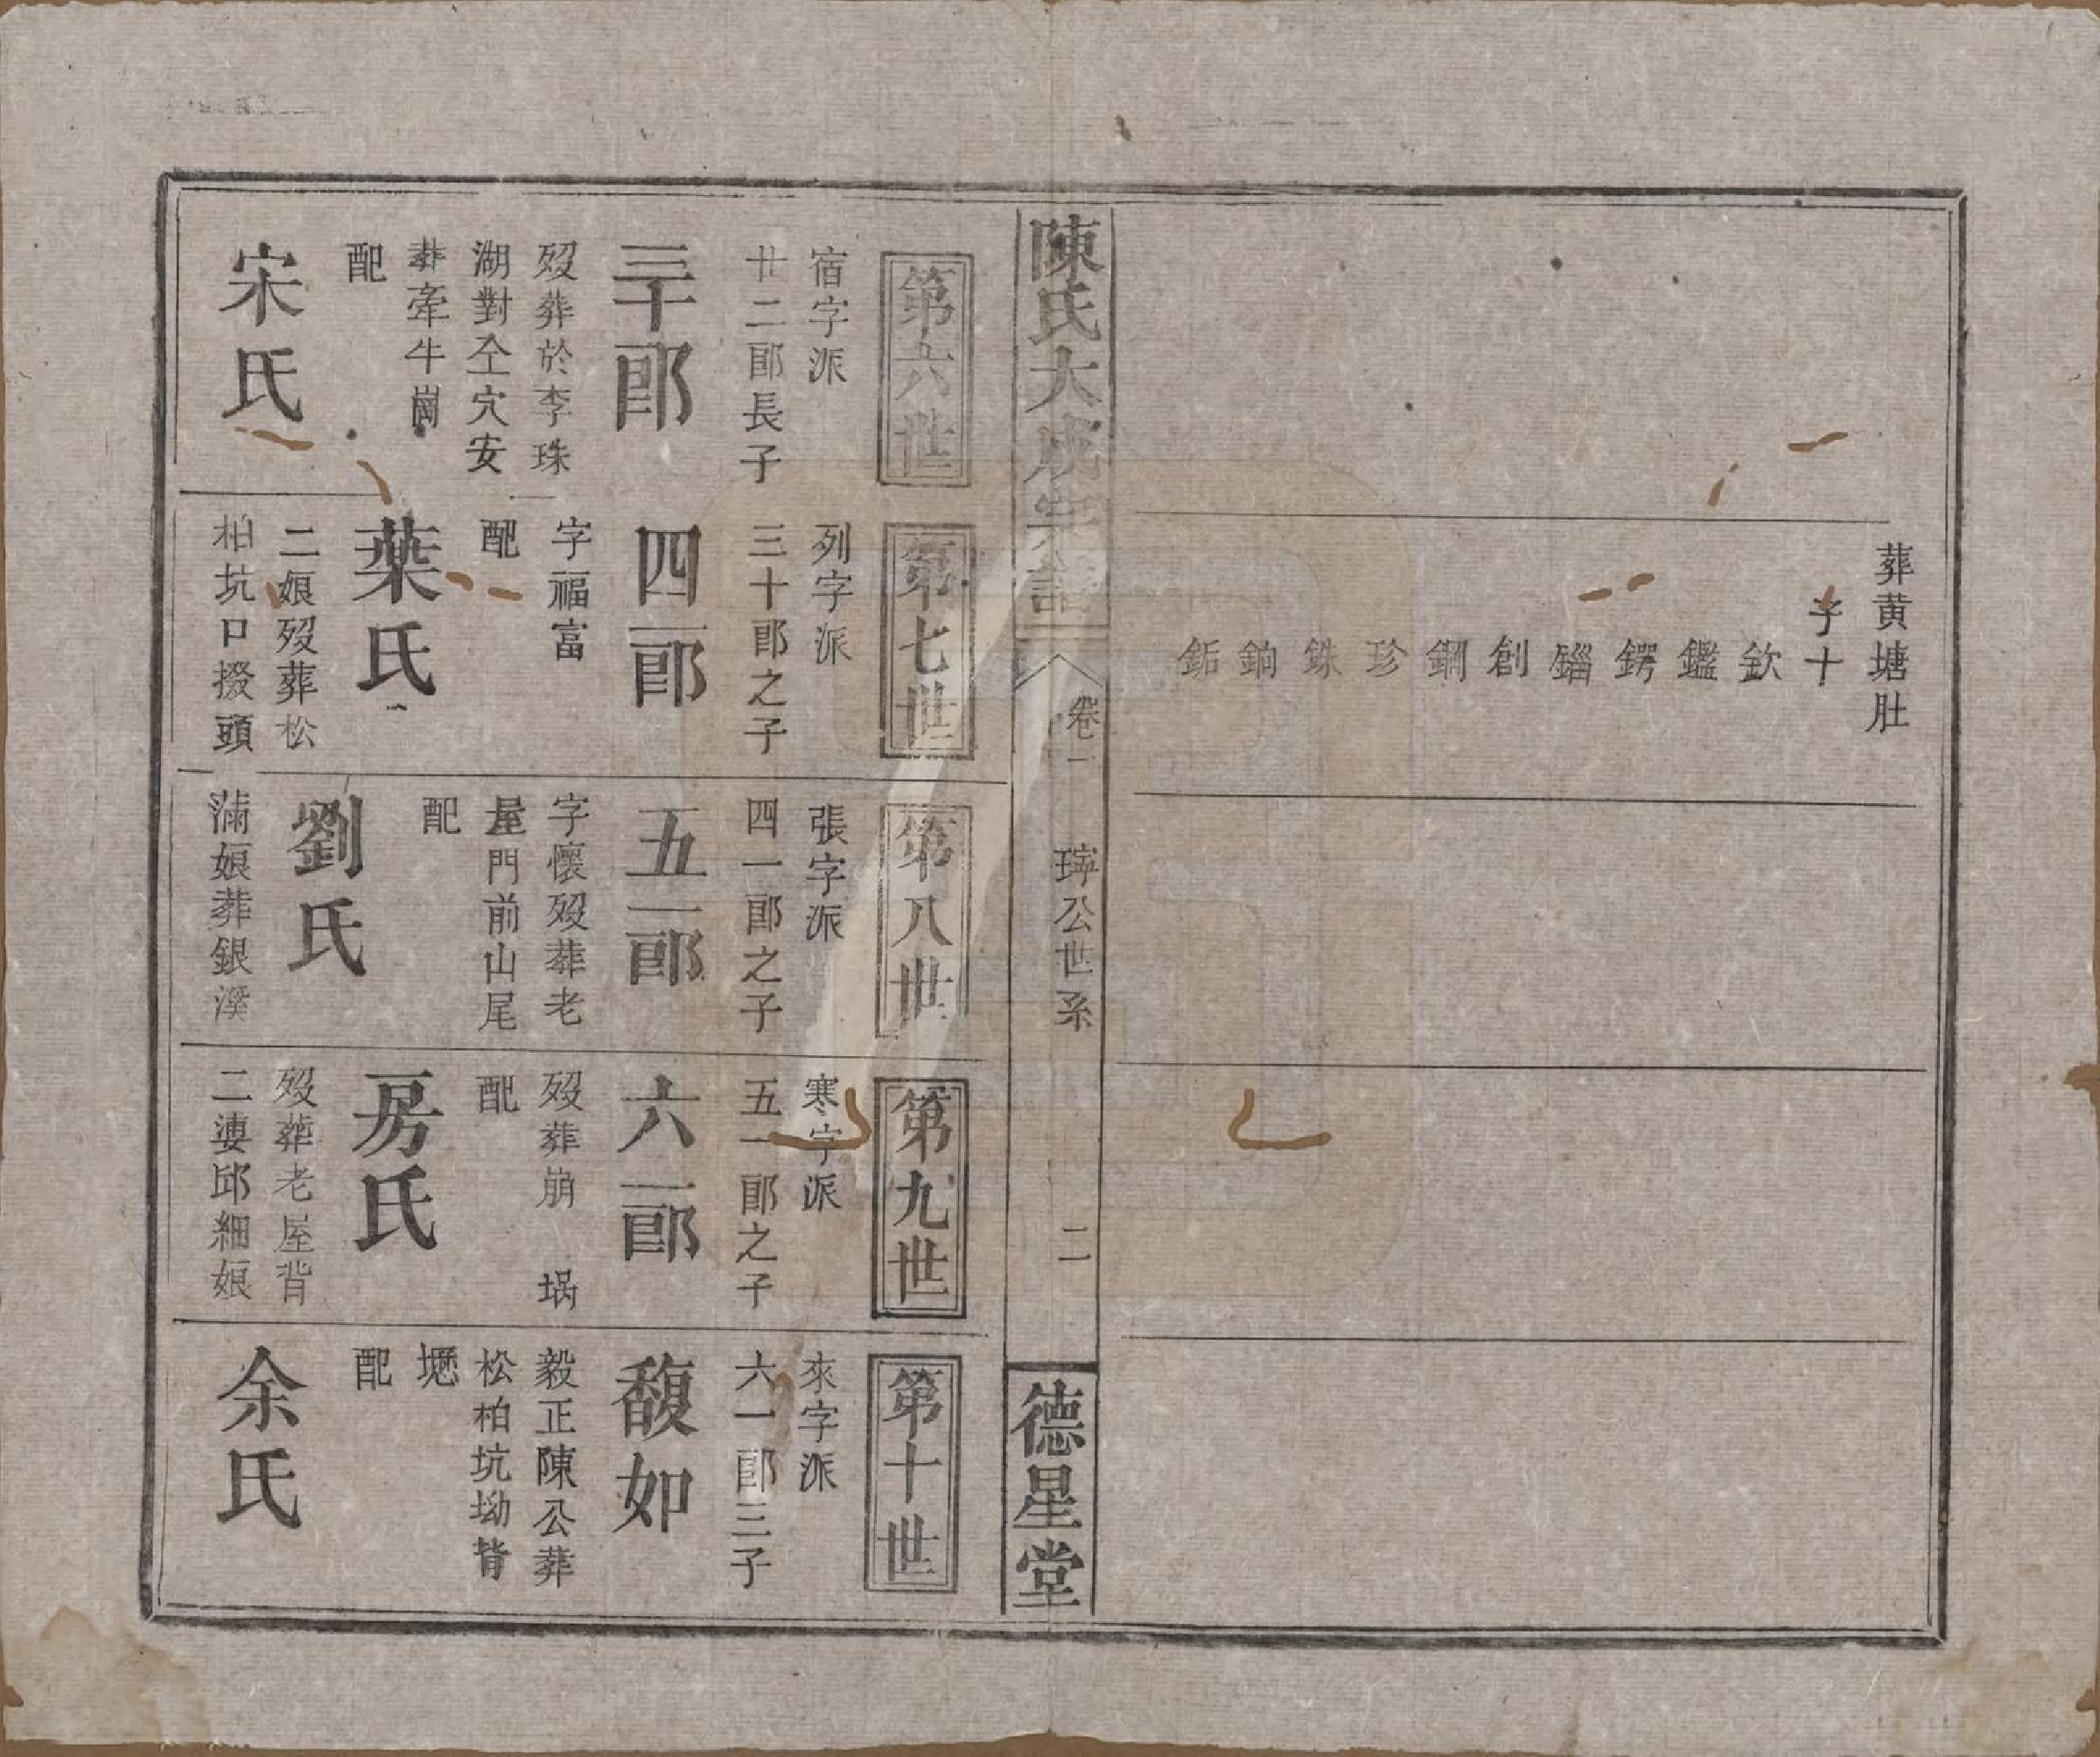 葬黄塘肚
子十
欽
鑑
鍔
錙
創
鋼
珍
銖
銄
鉐
陳氏大成宗譜
卷一
琫公世系
二
德星堂
第六世
宿字派
廿二郎長子
三十郎
歿葬於李珠
湖對仝穴安
葬牽牛崗
配
宋氏
第七世
列字派
三十郎之子
四一郎
字福富
配
葉氏
二娘歿葬松
柏坑口撥頭
第八世
張字派
四一郎之子
五一郎
字懷歿葬老
屋門前山尾
配
劉氏
滿娘葬銀溪
第九世
寒字派
五一郎之子
六一郎
歿葬崩 堝
配
房氏
歿葬老屋背
二婁邱細娘
第十世
來字派
六一郎三子
馥如
毅正陳公葬
松柏坑坳背
配
余氏